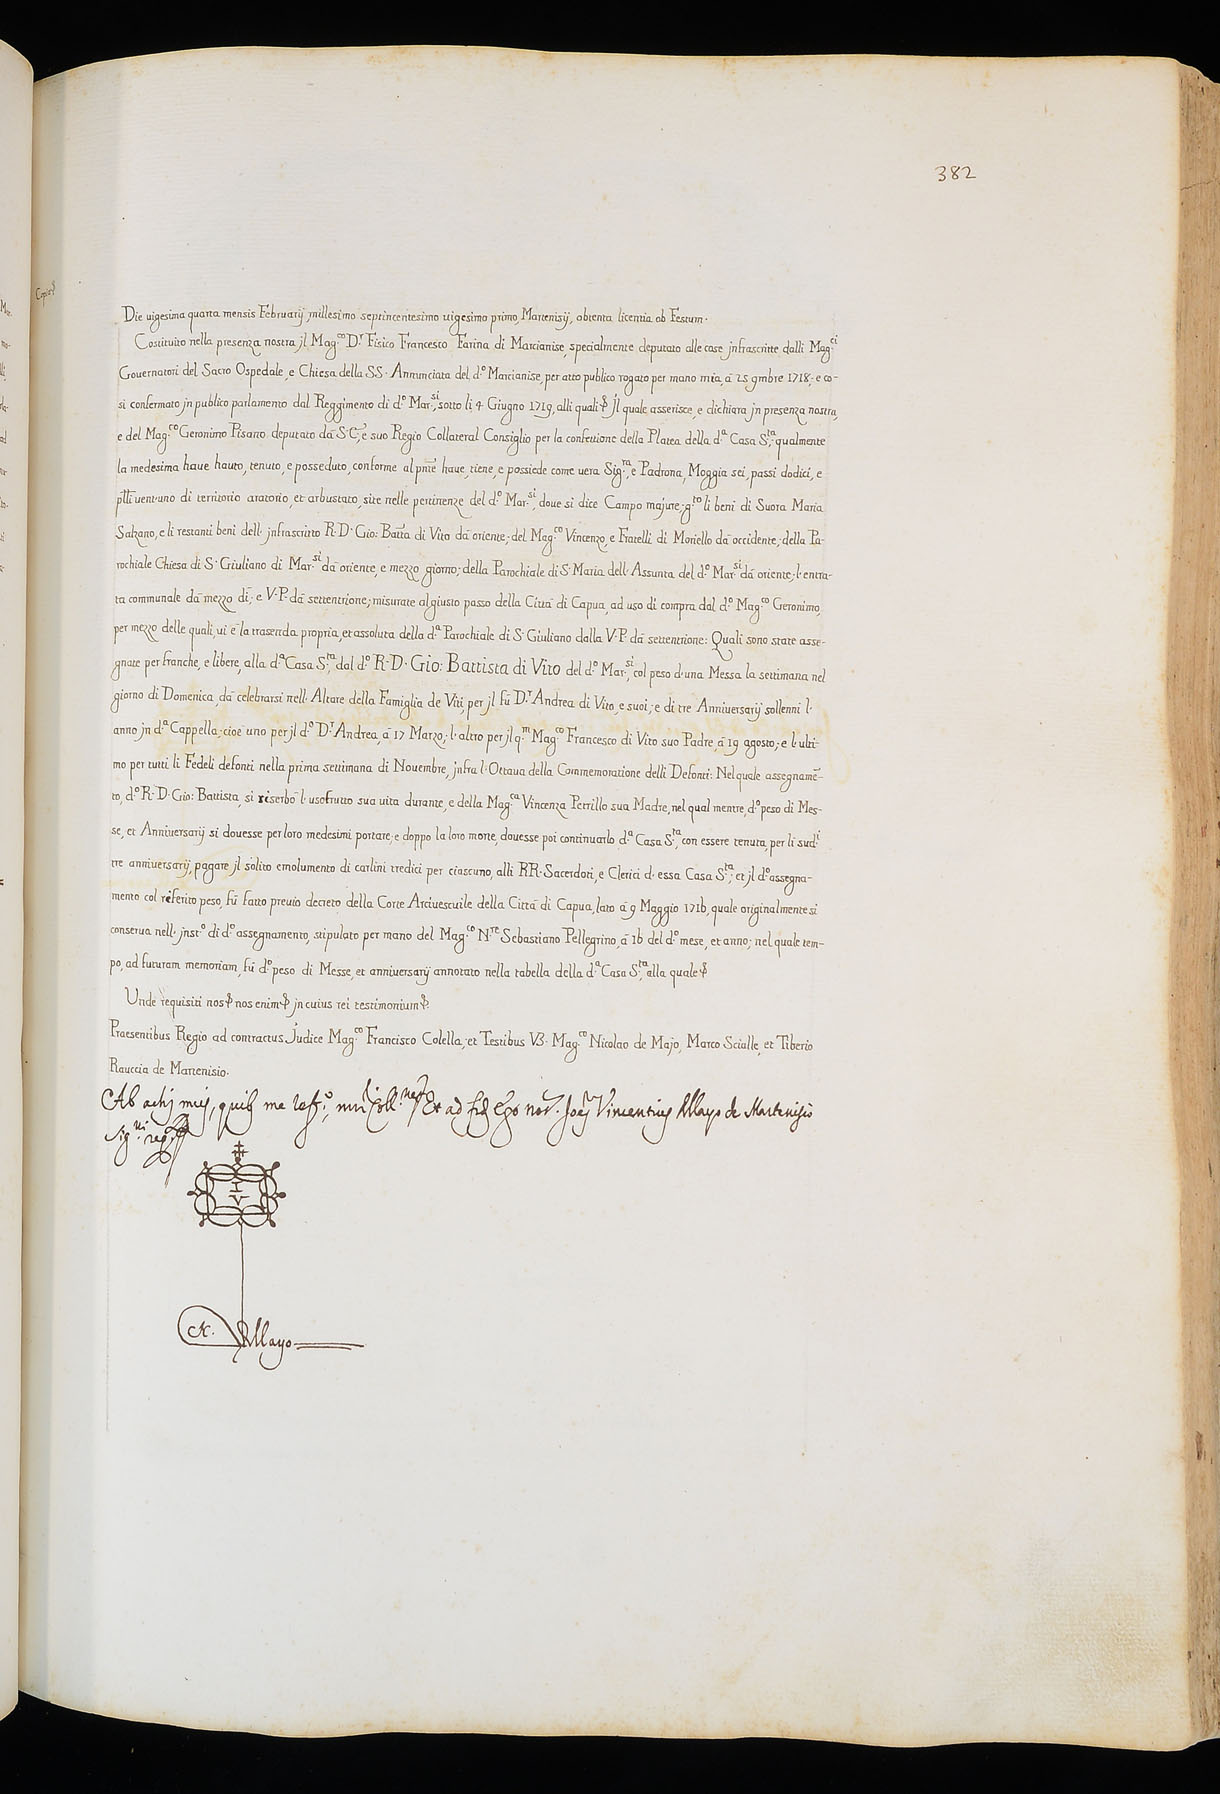 382
Copia
Die uigesima quarta mensis Februarij, millesimo septincentesimo uigesimo primo, Martenisij, obtenta licentia ob Festum.
Costituito nella presenza nostra jl Mag.co D.r Fisico Francesco Farina di Marcianise, specialmente deputato alle cose jnfrascritte dalli Mag.ci
Gouernatori del Sacro Ospedale, e Chiesa della SS. Annunciata del d.o Marcianise, per atto publico rogato per mano mia, à 25 9mbre 1718; e co-
sì confermato jn publico parlamento dal Reggimento di d.o Mar.si, sotto li 4 Giugno 1719, alli quali Jl quale asserisce, e dichiara jn presenza nostra,
e del Mag.co Geronimo Pisano deputato dà S. C., e suo Regio Collateral Consiglio per la confettione della Platea della d.a Casa S.ta, qualmente
la medesima haue hauto, tenuto, e posseduto, conforme al pnte haue, tiene, e possiede come uera Sig.ra, e Padrona, Moggia sei, passi dodici, e
ptti uent'uno di territorio aratorio, et arbustato, site nelle pertinenze del d.o Mar.si, doue si dice Campo majure; g.to li beni di Suora Maria
Salzano, e li restanti beni dell' jnfrascritto R. D. Gio: Batta di Vito dà oriente; del Mag.co Vincenzo, e Fratelli di Moriello dà occidente; della Pa-
rochiale Chiesa di S. Giuliano di Mar.si dà oriente, e mezzo giorno; della Parochiale di S. Maria dell' Assunta del d.o Mar.si dà oriente; l'entra-
ta communale dà mezzo dì; e V. P. dà settentrione; misurate al giusto passo della Città di Capua, ad uso di compra dal d.o Mag.co Geronimo,
per mezzo delle quali, ui è la trasenda propria, et assoluta della d.a Parochiale di S. Giuliano dalla V. P. dà settentrione: Quali sono state asse-
gnate per franche, e libere, alla d.a Casa S.ta, dal d.o R. D. Gio: Battista di Vito del d.o Mar.si, col peso d'una Messa la settimana nel
giorno di Domenica, dà celebrarsi nell' Altare della Famiglia de Viti, per jl fù D.r Andrea di Vito, e suoi; e di tre Anniuersarij sollenni l'
anno jn d.a Cappella; cioè uno per jl d.o D.r Andrea, à 17 Marzo; l'altro per jl q.m Mag.co Francesco di Vito suo Padre, à 19 agosto; e l'ulti-
mo per tutti li Fedeli defonti nella prima settimana di Nouembre, jnfra l'Ottaua della Commemoratione delli Defonti: Nel quale assegname-
to, d.o R. D. Gio: Battista, si riserbò l'usofrutto sua uita durante, e della Mag.ca Vincenza Petrillo sua Madre, nel qual mentre, d.o peso di Mes-
se, et Anniuersarij si douesse per loro medesimi portare, e doppo la loro morte, douesse poi continuarlo d.a Casa S.ta, con essere tenuta, per li sud.i
tre anniuersarij, pagare jl solito emolumento di carlini tredici per ciascuno, alli RR. Sacerdoti, e Clerici d'essa Casa S.ta; et jl d.o assegna-
mento col riferito peso, fù fatto preuio decreto della Corte Arciuescuile della Città di Capua, lato à 9 Maggio 1716, quale originalmente si
conserua nell' jnst.o di d.o assegnamento, stipulato per mano del Mag.co N.re Sebastiano Pellegrino, à 16 del d.o mese, et anno; nel quale tem-
po, ad futuram memoriam, fù d.o peso di Messe, et anniuersarij annotato nella tabella della d.a Casa S.ta alla quale
Unde requisiti nos nos enim jn cuius rei testimonium
Praesentibus Regio ad contractus Judice Mag.co Francisco Colella; et Testibus V3. Mag.co Nicolao de Majo, Marco Scialle, et Tiberio
Rauccia de Martenisio.
Ab actis meis, quibus me Et ad fidem Ego not. Joes Vincentius Mayo de Martenisio
Sig.ui
I
V
N. Mayo